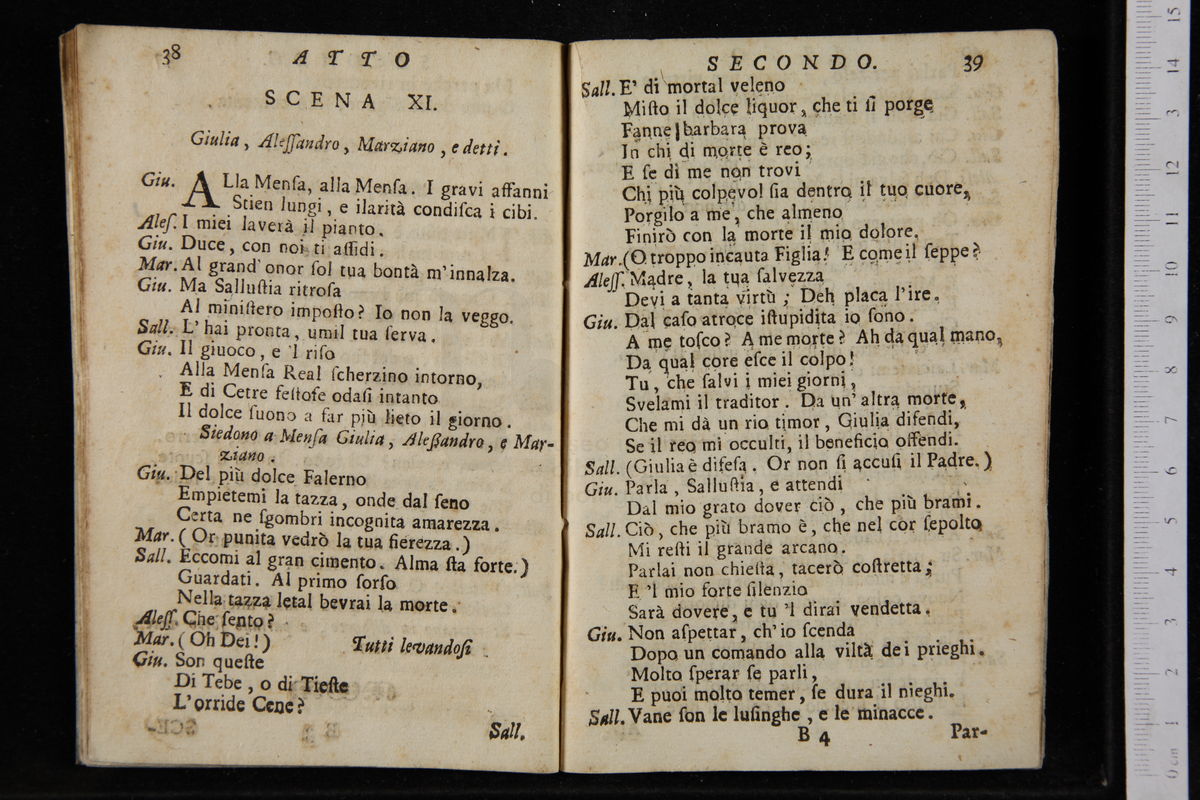 38 ATTO
SCENA XI.
Giulia, Aleſſandro, Marziano, e detti.
Giu. ALla Menſa, alla Menſa. I gravi affanni
Stien lungi, e ilarità condiſca i cibi.
Aleſ. I miei laverà il pianto.
Giu. Duce, con noi ti aſſidi.
Mar. Al grand' onor ſol tua bontà m'innalza.
Giu. Ma Salluſtia ritroſa
Al miniſtero impoſto? Io non la veggo.
Sall. L' hai pronta, umil tua ſerva.
Giu. Il giuoco, e 'l riſo
Alla Menſa Real ſcherzino intorno,
E di Cetre feſtoſe odaſi intanto
Il dolce ſuono a far più lieto il giorno.
Siedono a Menſa Giulia, Aleßandro, e Mar-
ziano.
Giu. Del più dolce Falerno
Empietemi la tazza, onde dal ſeno
Certa ne ſgombri incognita amarezza.
Mar. (Or punita vedrò la tua fierezza.)
Sall. Eccomi al gran cimento. Alma ſta forte.)
Guardati. Al primo ſorſo
Nella tazza letal bevrai la morte.
Aleſſ. Che ſento?
Mar. (Oh Dei!) Tutti levandoſi
Giu. Son queſte
Di Tebe, o di Tieſte
L'orride Cene?
Sall.
SECONDO. 39
Sall. E' di mortal veleno
Miſto il dolce liquor, che ti ſi porge
Fanne barbara prova
In chi di morte è reo;
E ſe di me non trovi
Chi più colpevol ſia dentro il tuo cuore,
Porgilo a me, che almeno
Finirò con la morte il mio dolore.
Mar. (O troppo incauta Figlia! E come il ſeppe?
Aleſſ. Madre, la tua ſalvezza
Devi a tanta virtù; Deh placa l'ire.
Giu. Dal caſo atroce iſtupidita io ſono.
A me toſco? A me morte? Ah da qual mano,
Da qual core eſce il colpo!
Tu, che ſalvi i miei giorni,
Svelami il traditor. Da un' altra morte,
Che mi dà un rio timor, Giulia difendi,
Se il reo mi occulti, il beneficio offendi.
Sall. (Giulia è difeſa. Or non ſi accuſi il Padre.)
Giu. Parla, Salluſtia, e attendi
Dal mio grato dover ciò, che più brami.
Sall. Ciò, che più bramo è, che nel cor ſepolto
Mi reſti il grande arcano.
Parlai non chieſta, tacerò coſtretta;
E 'l mio forte ſilenzio
Sarà dovere, e tu 'l dirai vendetta.
Giu. Non aſpettar, ch'io ſcenda
Dopo un comando alla viltà dei prieghi.
Molto ſperar ſe parli,
E puoi molto temer, ſe dura il nieghi.
Sall. Vane ſon le luſinghe, e le minacce.
B 4 Par-